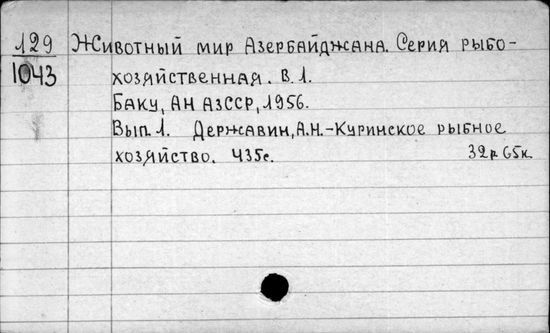 129 Животный мир Азербайджана. Серия рыбо-
1043 хозяйственная. В.1.
Баку, АН АзССР, 1956.
Вып.1. Державин, А.Н.-Куринское рыбное
хозяйство. 435с. 32р. 65к.